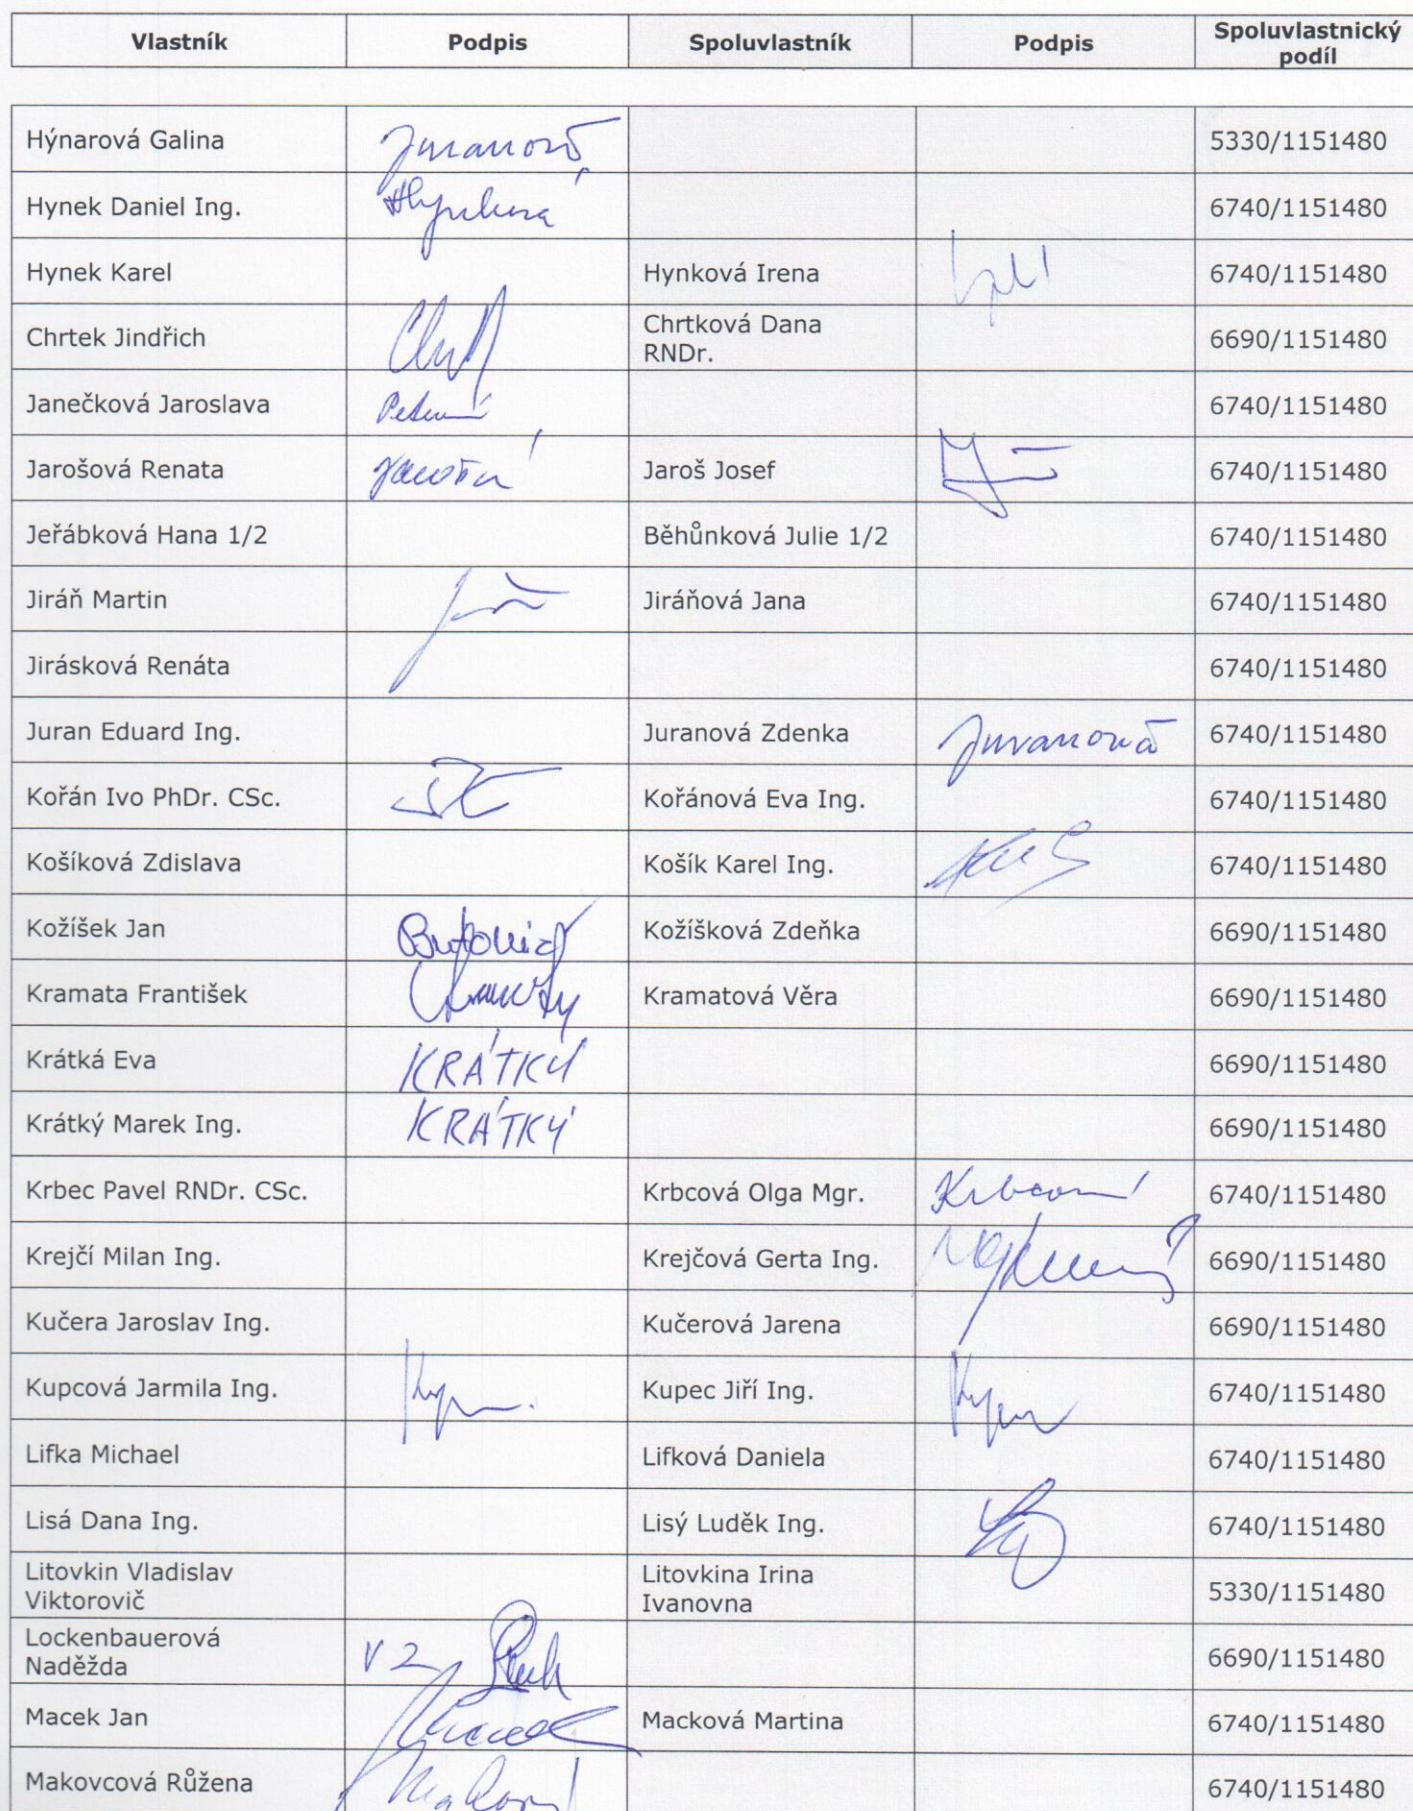 Vlastník Podpis Spoluvlastník Podpis Spoluvlastnický podíl
Hýnarová Galina Juranová 5330/1151480
Hynek Daniel Ing. 6740/1151480
Hynek Karel Hynková Irena 6740/1151480
Chrtek Jindřich Chrtková Dana RNDr. 6690/1151480
Janečková Jaroslava 6740/1151480
Jarošová Renata Jaroš Josef 6740/1151480
Jeřábková Hana 1/2 Běhůnková Julie 1/2 6740/1151480
Jiráň Martin Jiráňová Jana 6740/1151480
Jirásková Renáta 6740/1151480
Juran Eduard Ing. Juranová Zdenka Juranová 6740/1151480
Kořán Ivo PhDr. CSc. Kořánová Eva Ing. 6740/1151480
Košíková Zdislava Košík Karel Ing. 6740/1151480
Kožíšek Jan Kožíšková Zdeňka 6690/1151480
Kramata František Kramatová Věra 6690/1151480
Krátká Eva KRÁTKÝ 6690/1151480
Krátký Marek Ing. KRÁTKÝ 6690/1151480
Krbec Pavel RNDr. CSc. Krbcová Olga Mgr. Krbcová 6740/1151480
Krejčí Milan Ing. Krejčová Gerta Ing. 6690/1151480
Kučera Jaroslav Ing. Kučerová Jarena 6690/1151480
Kupcová Jarmila Ing. Kupec Jiří Ing. 6740/1151480
Lifka Michael Lifková Daniela 6740/1151480
Lisá Dana Ing. Lisý Luděk Ing. 6740/1151480
Litovkin Vladislav Viktorovič Litovkina Irina Ivanovna 5330/1151480
Lockenbauerová Naděžda 6690/1151480
Macek Jan Macková Martina 6740/1151480
Makovcová Růžena 6740/1151480